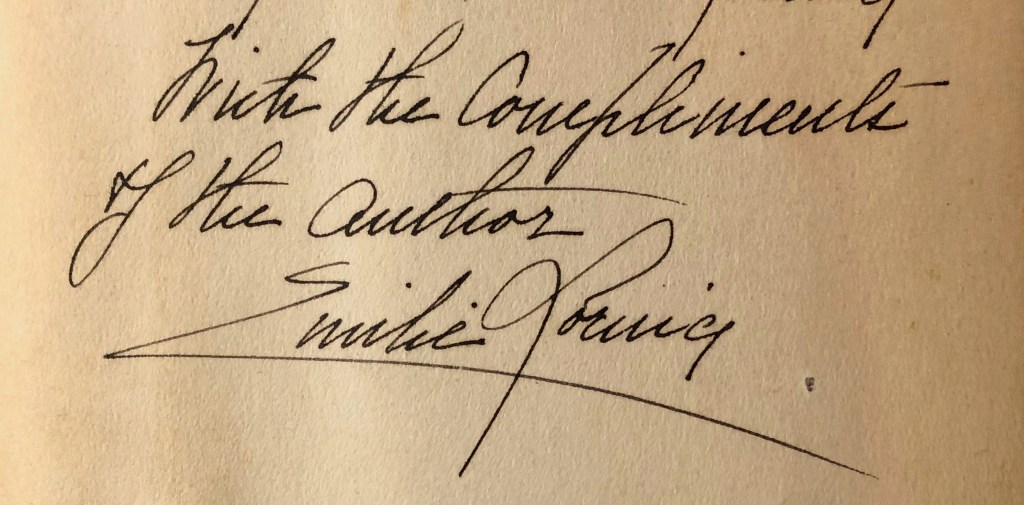 With the Compliments
of the author
Emilie Loring